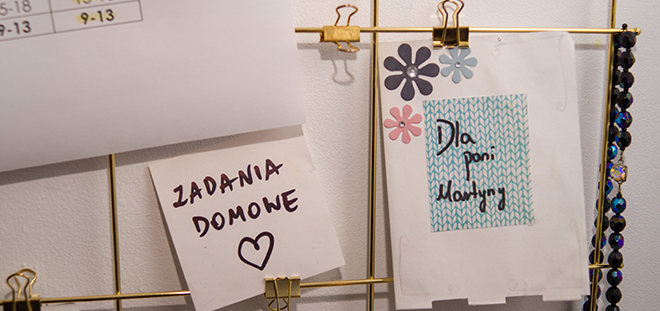 5-18
9-13
9-13
ZADANIA
DOMOWE
Dla
pani
Martyny